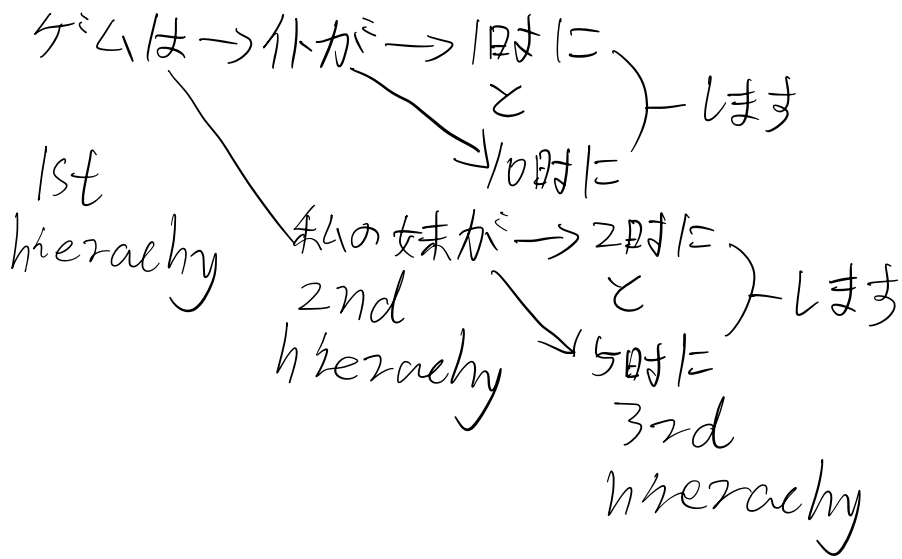 ゲムは→仆が→1時に
と
10時に
します
1st
hierachy
私の妹が→2時に
と
5時に
します
2nd
hierachy
3rd
hierachy